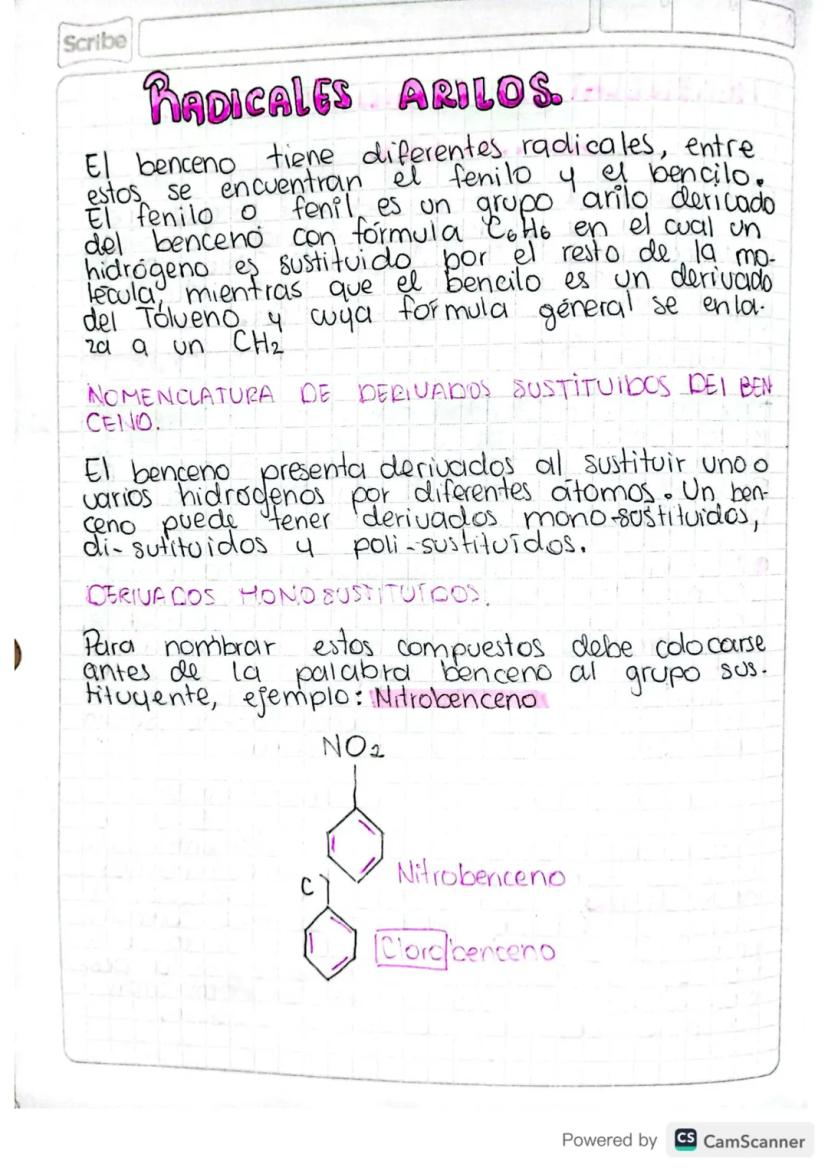 Scribe
RADICALES ARILOS.
El benceno tiene diferentes radicales, entre
estos se encuentran el fenilo y el bencilo.
El fenilo o fenil es un grupo arilo dericado
del benceno con fórmula C6H6 en el cual un
hidrógeno es sustituido por el resto de la mo-
lécula, mientras que el bencilo es un derivado
del Tolueno y cuya formula géneral se enla-
za a un CH2
NOMENCLATURA DE DERIVADOS SUSTITUIDOS DEl BEN
CENO.
El benceno presenta derivados al sustituir uno o
varios hidrógenos por diferentes átomos. Un ben-
ceno puede tener derivados mono-sustituidos,
di-sutituidos y poli-sustituídos.
DERIVADOS MONOSUSTITUÍDOS.
Para nombrar estos compuestos debe colocarse
antes de la palabra benceno al grupo sus-
tituyente, ejemplo: Nitrobenceno
NO2
Nitrobenceno
Cl
Clorobenceno
Powered by CS CamScanner